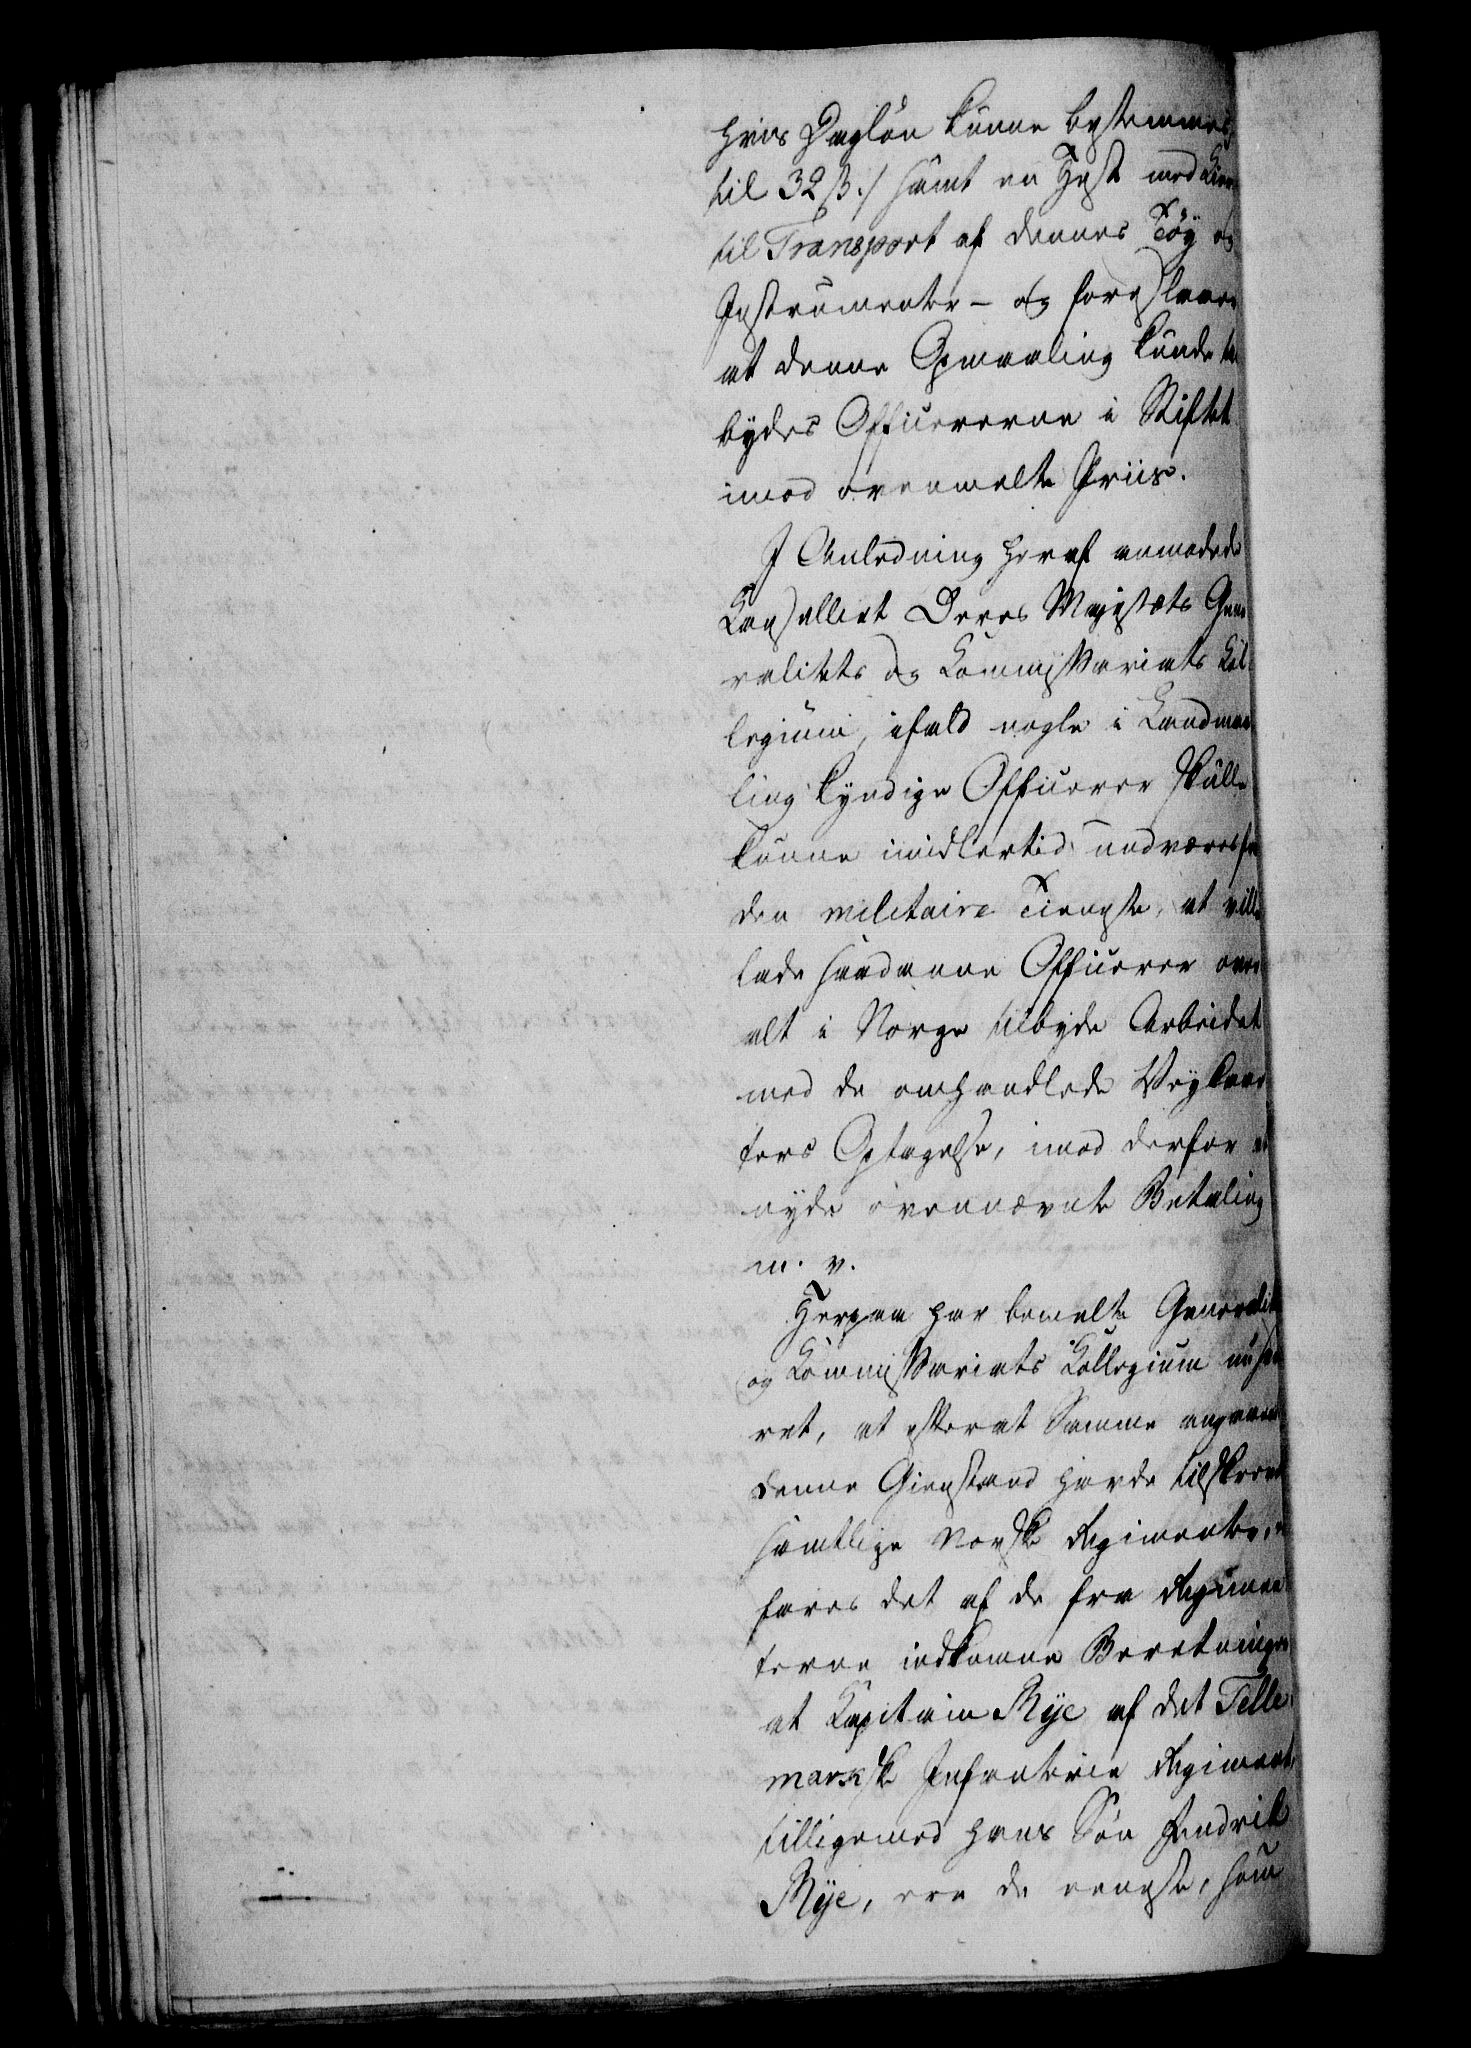 hvis Dagløn kunne bestemmes
til 32 ß./ samt en Hest med
til Transport af dennes Tøy og
Instrumenter – og foreslaaer
at denne Opmaaling kunde
bydes Officererne i Stiftet
imod ovenmelte Priis.
I Anledning heraf anmodede
Kancelliet Deres Majestæts Gene
ralitets og Kommissariats Kol
legium, ifald nogle i Landmaa
ling kyndige Officerer skulle
kunne imidlertid undværes fra
den militaire Tieneste, at ville
lade saadanne Officerer over
alt i Norge tilbyde Arbeidet
med de omhandlede Veykaar
ters Optagelse, imod derfor at
nyde ovennævnte Betaling
m. v.
Herpaa har bemelte Generalit
og Kommissariats Kollegium
ret, at efterat Samme angaaende
denne Gienstand havde tilskrevet
samtlige Norske Regimenter,
fares det af de fra Regimen
terne indkomne Beretninger
at Kapitain Mÿe af det Telle
markske Infanterie Regiment,
tilligemed hans Søn Hendrik
Mÿe, ere de eneste, som